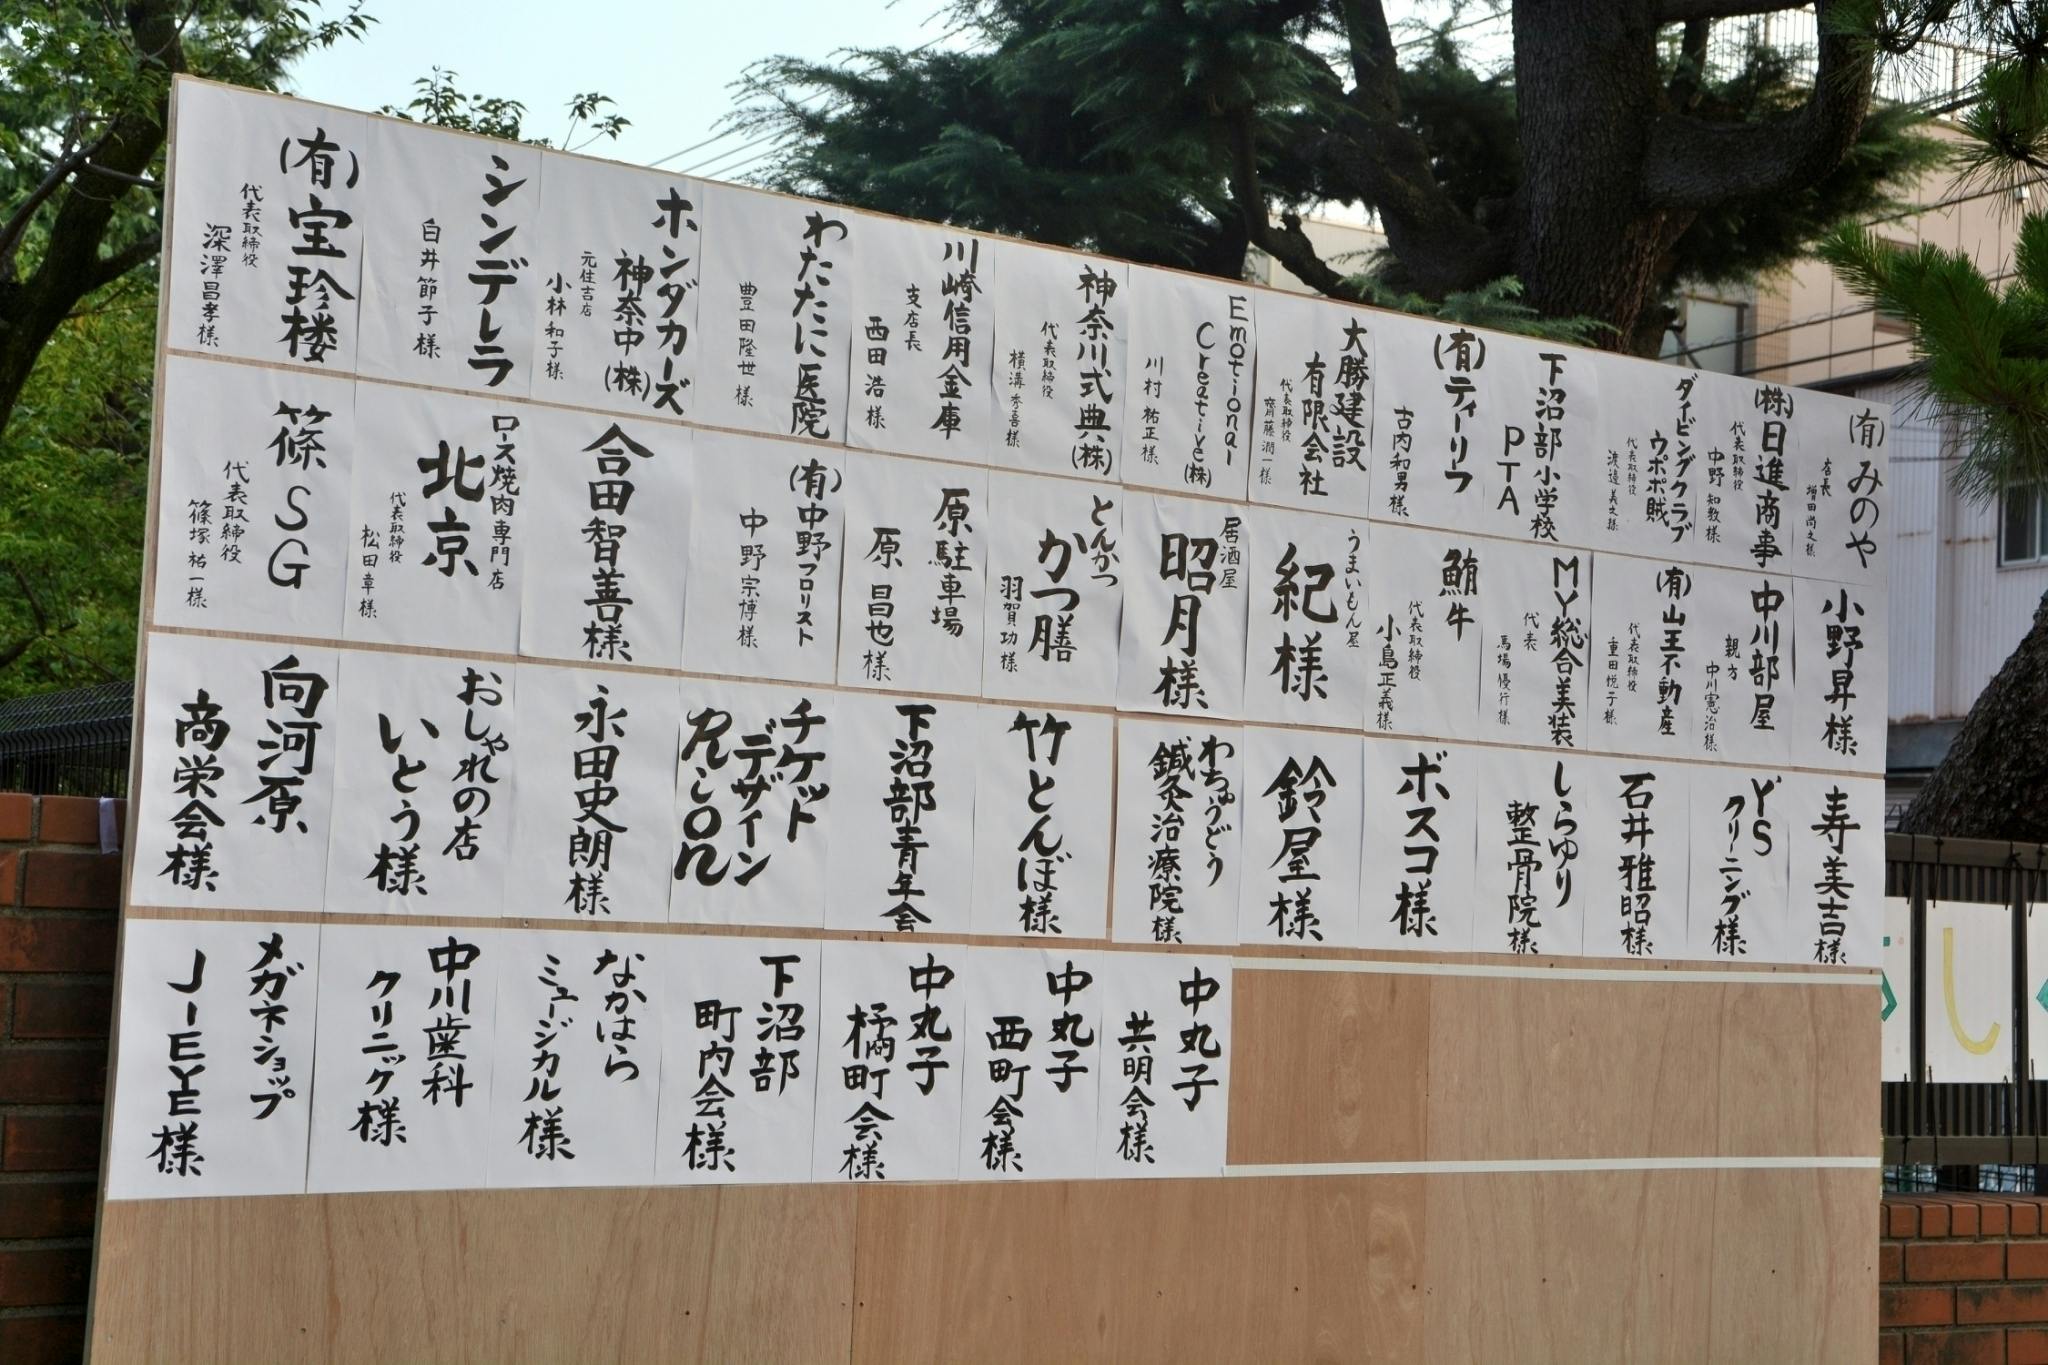 (有)みのや
店長
増田尚之様
(株)日進商事
代表取締役
中野知教様
ダイビングクラブ
ウポポ賊
代表取締役
渡邉美之様
下沼部小学校
PTA
(有)ティーリーフ
古内和男様
大勝建設
有限会社
代表取締役
齋藤潤一様
Emotional
Creative(株)
川村祐正様
神奈川式典(株)
代表取締役
横溝秀喜様
川崎信用金庫
支店長
西田浩様
わたたに医院
豊田隆世様
ホンダカーズ
神奈中(株)
元住吉店
小林和子様
シンデレラ
白井節子様
(有)宝珍楼
代表取締役
深澤昌孝様
小野昇様
中川部屋
親方
中川憲治様
(有)山王不動産
代表取締役
重田悦子様
MY総合美装
代表
馬場優行様
鮪牛
代表取締役
小島正義様
うまいもん屋
紀様
居酒屋
昭月様
とんかつ
かつ膳
羽賀功様
原駐車場
原昌也様
(有)中野フロリスト
中野宗博様
合田智善様
ロース焼肉専門店
北京
代表取締役
松田章様
篠SG
代表取締役
篠塚祐一様
寿美吉様
YS
クリーニング様
石井雅昭様
しらゆり
整骨院様
ボスコ様
鈴屋様
わちゅうどう
鍼灸治療院様
竹とんぼ様
下沼部青年会
チケット
デザイン
永田史朗様
おしゃれの店
いとう様
向河原
商栄会様
中丸子
共明会様
中丸子
西町会様
中丸子
橘町会様
下沼部
町内会様
なかはら
ミュージカル様
中川歯科
クリニック様
メガネショップ
J-EYE様
し